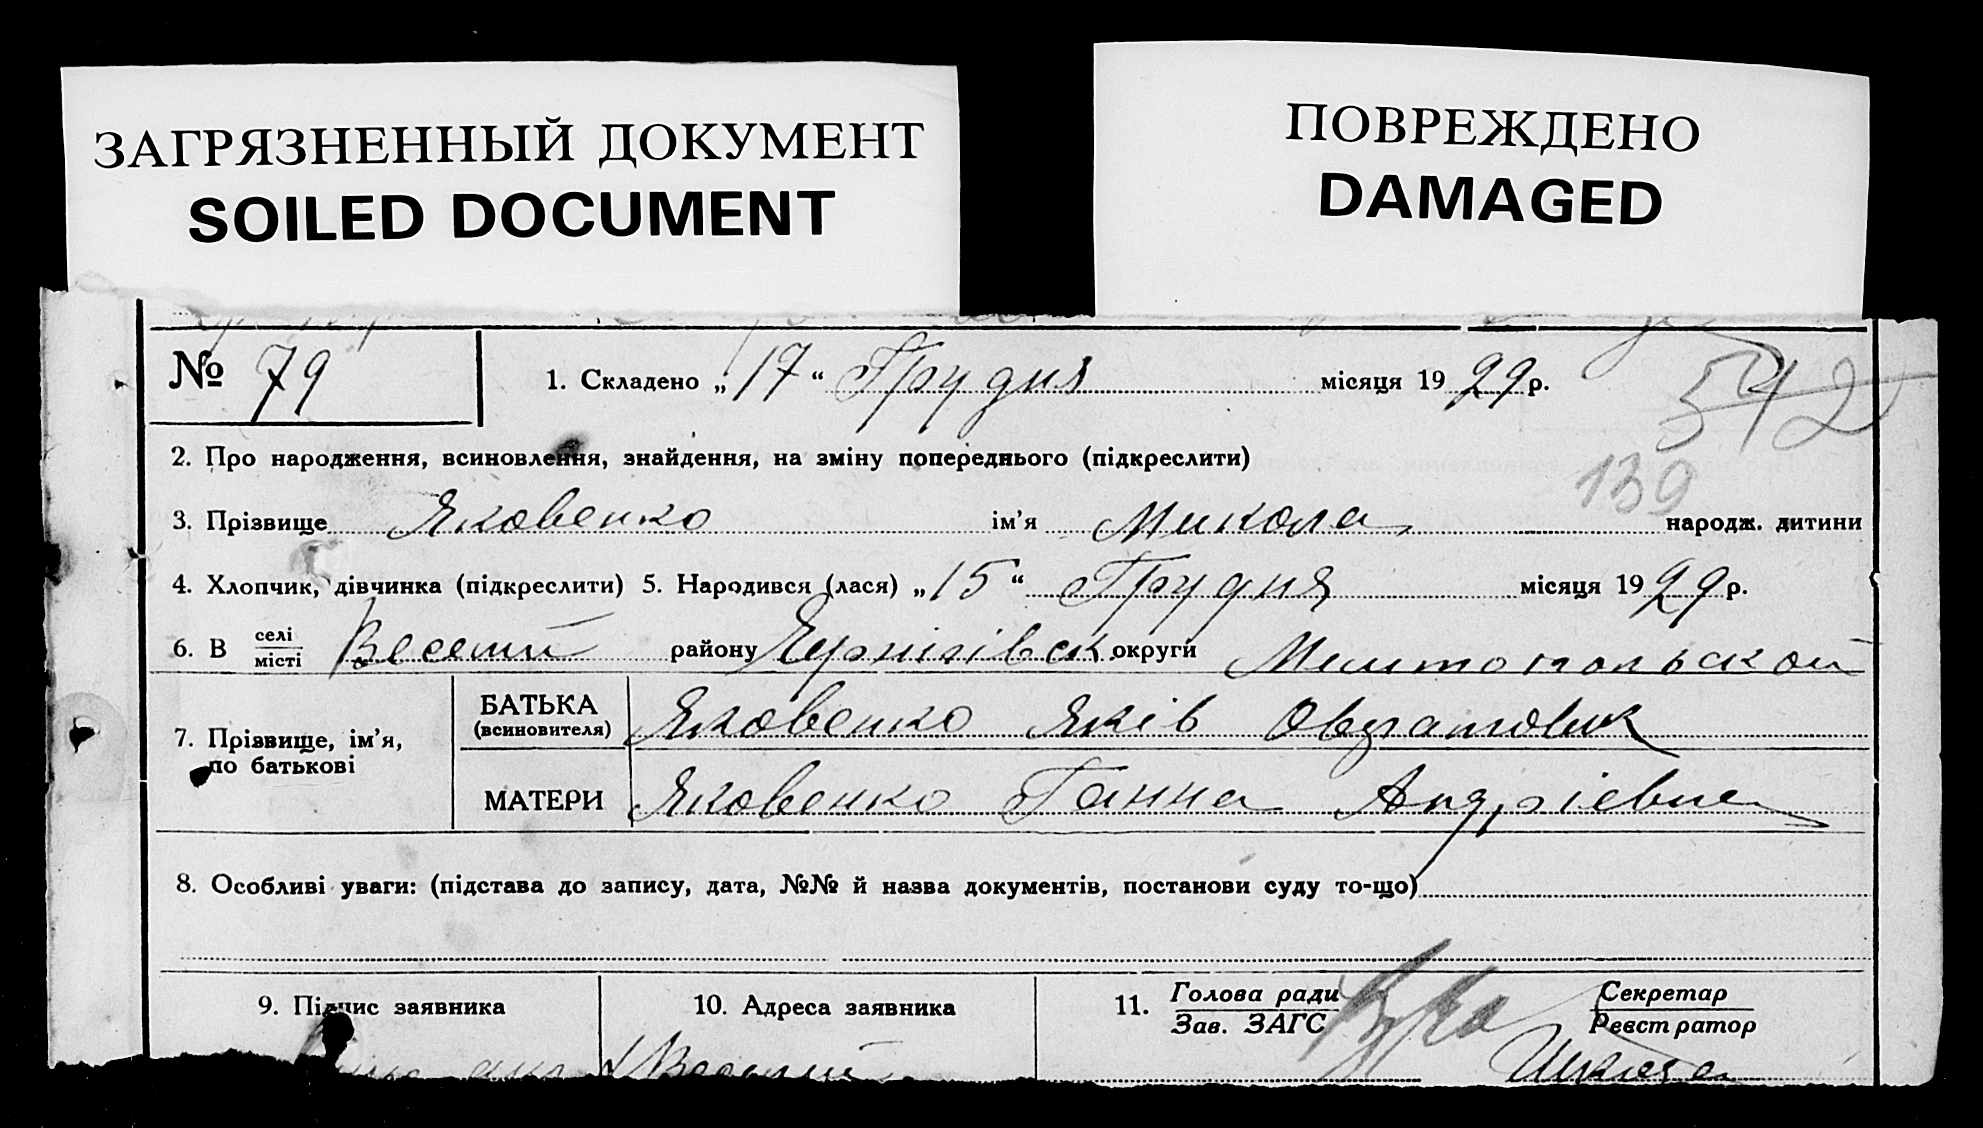 ЗАГРЯЗНЕННЫЙ ДОКУМЕНТ
SOILED DOCUMENT
ПОВРЕЖДЕНО
DAMAGED
№ 79
1. Складено „17“ Грудня місяця 1929 р.
542
2. Про народження, всиновлення, знайдення, на зміну попереднього (підкреслити)
139
3. Прізвище Яковенко ім’я Микола народж. дитини
4. Хлопчик, дівчинка (підкреслити) 5. Народився (лася) „15“ Грудня місяця 1929 р.
6. В селі місті Веселий району округи
7. Прізвище, ім’я, по батькові
БАТЬКА (всиновителя) Яковенко Яків
МАТЕРИ Яковенко Ганна Андріевна
8. Особливі уваги: (підстава до запису, дата, №№ й назва документів, постанови суду то-що)
9. Підпис заявника
10. Адреса заявника
11. Голова ради Зав. ЗАГС
Секретар Реєстратор
Веселий